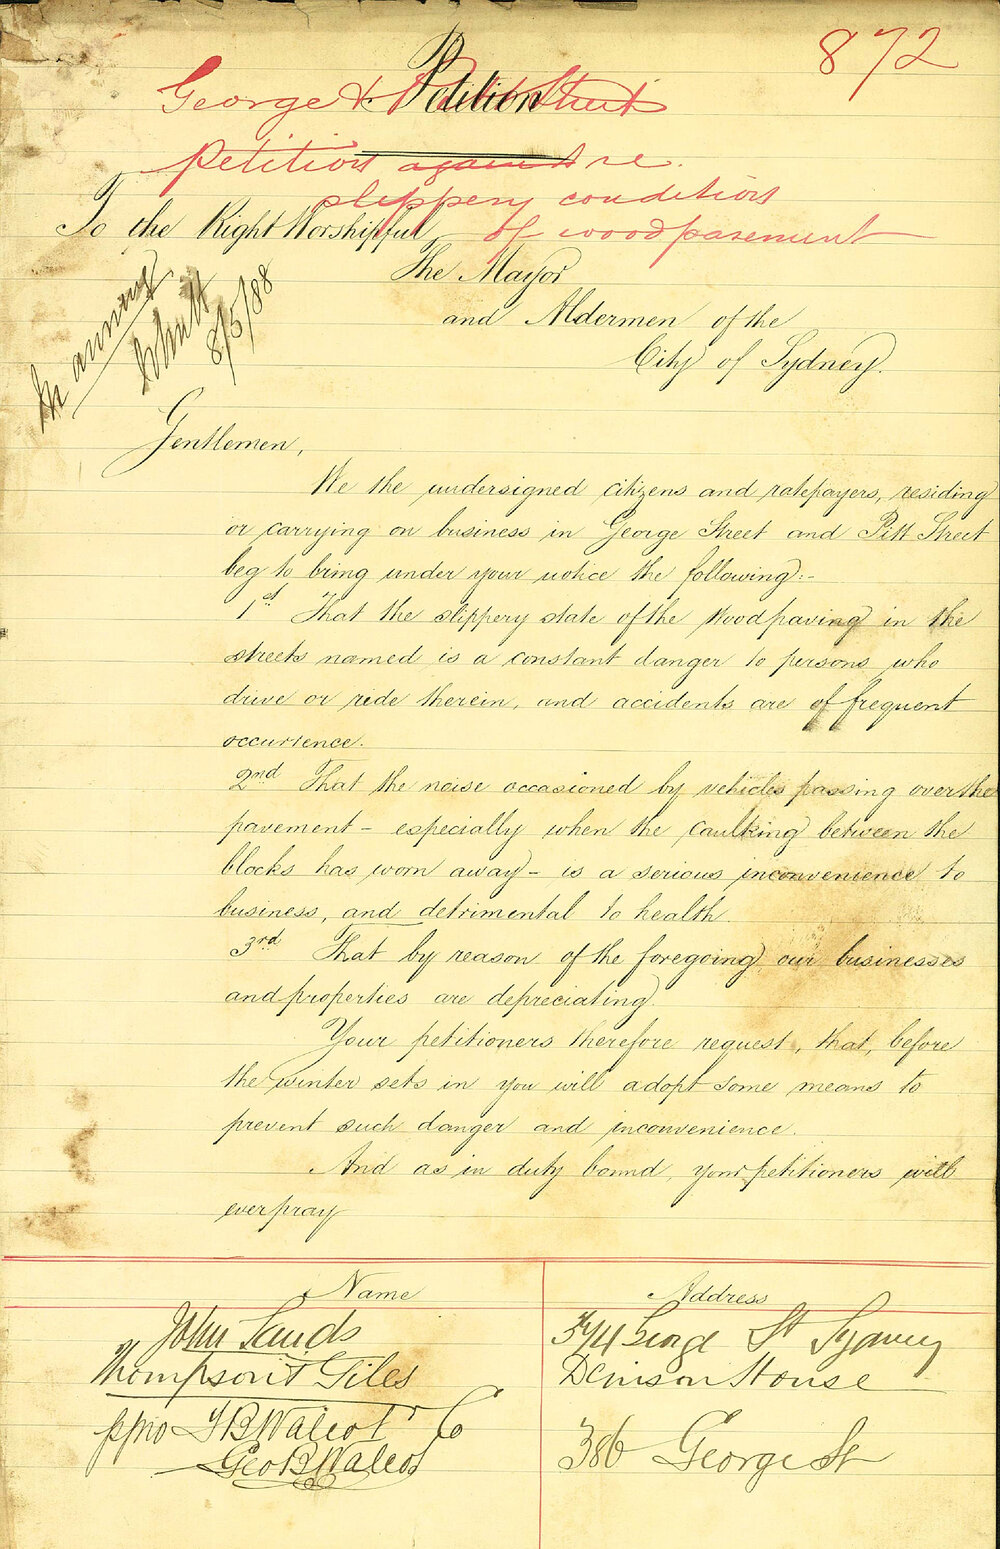 872
Petition
George & Pitt Streets
petition against re.
slippery condition
of woodpavement
To the Right Worshipful
The Mayor
and Aldermen of the
City of Sydney.
8/5/88
Gentlemen,
We the undersigned citizens and ratepayers, residing
or carrying on business in George Street and Pitt Street
beg to bring under your notice the following:-
1st That the slippery state of the Wood paving in the
streets named is a constant danger to persons who
drive or ride therein, and accidents are of frequent
occurrence.
2nd That the noise occasioned by vehicles passing over the
pavement - especially when the caulking between the
blocks has worn away - is a serious inconvenience to
business, and detrimental to health.
3rd That by reason of the foregoing our businesses
and properties are depreciating.
Your petitioners therefore request, that, before
the winter sets in you will adopt some means to
prevent such danger and inconvenience.
And as in duty bound, your petitioners will
ever pray
Name Address
John Sands 374 George St Sydney
Thompson & Giles Denison House
ppro Walcot & Co
Geo B Walcot 386 George St